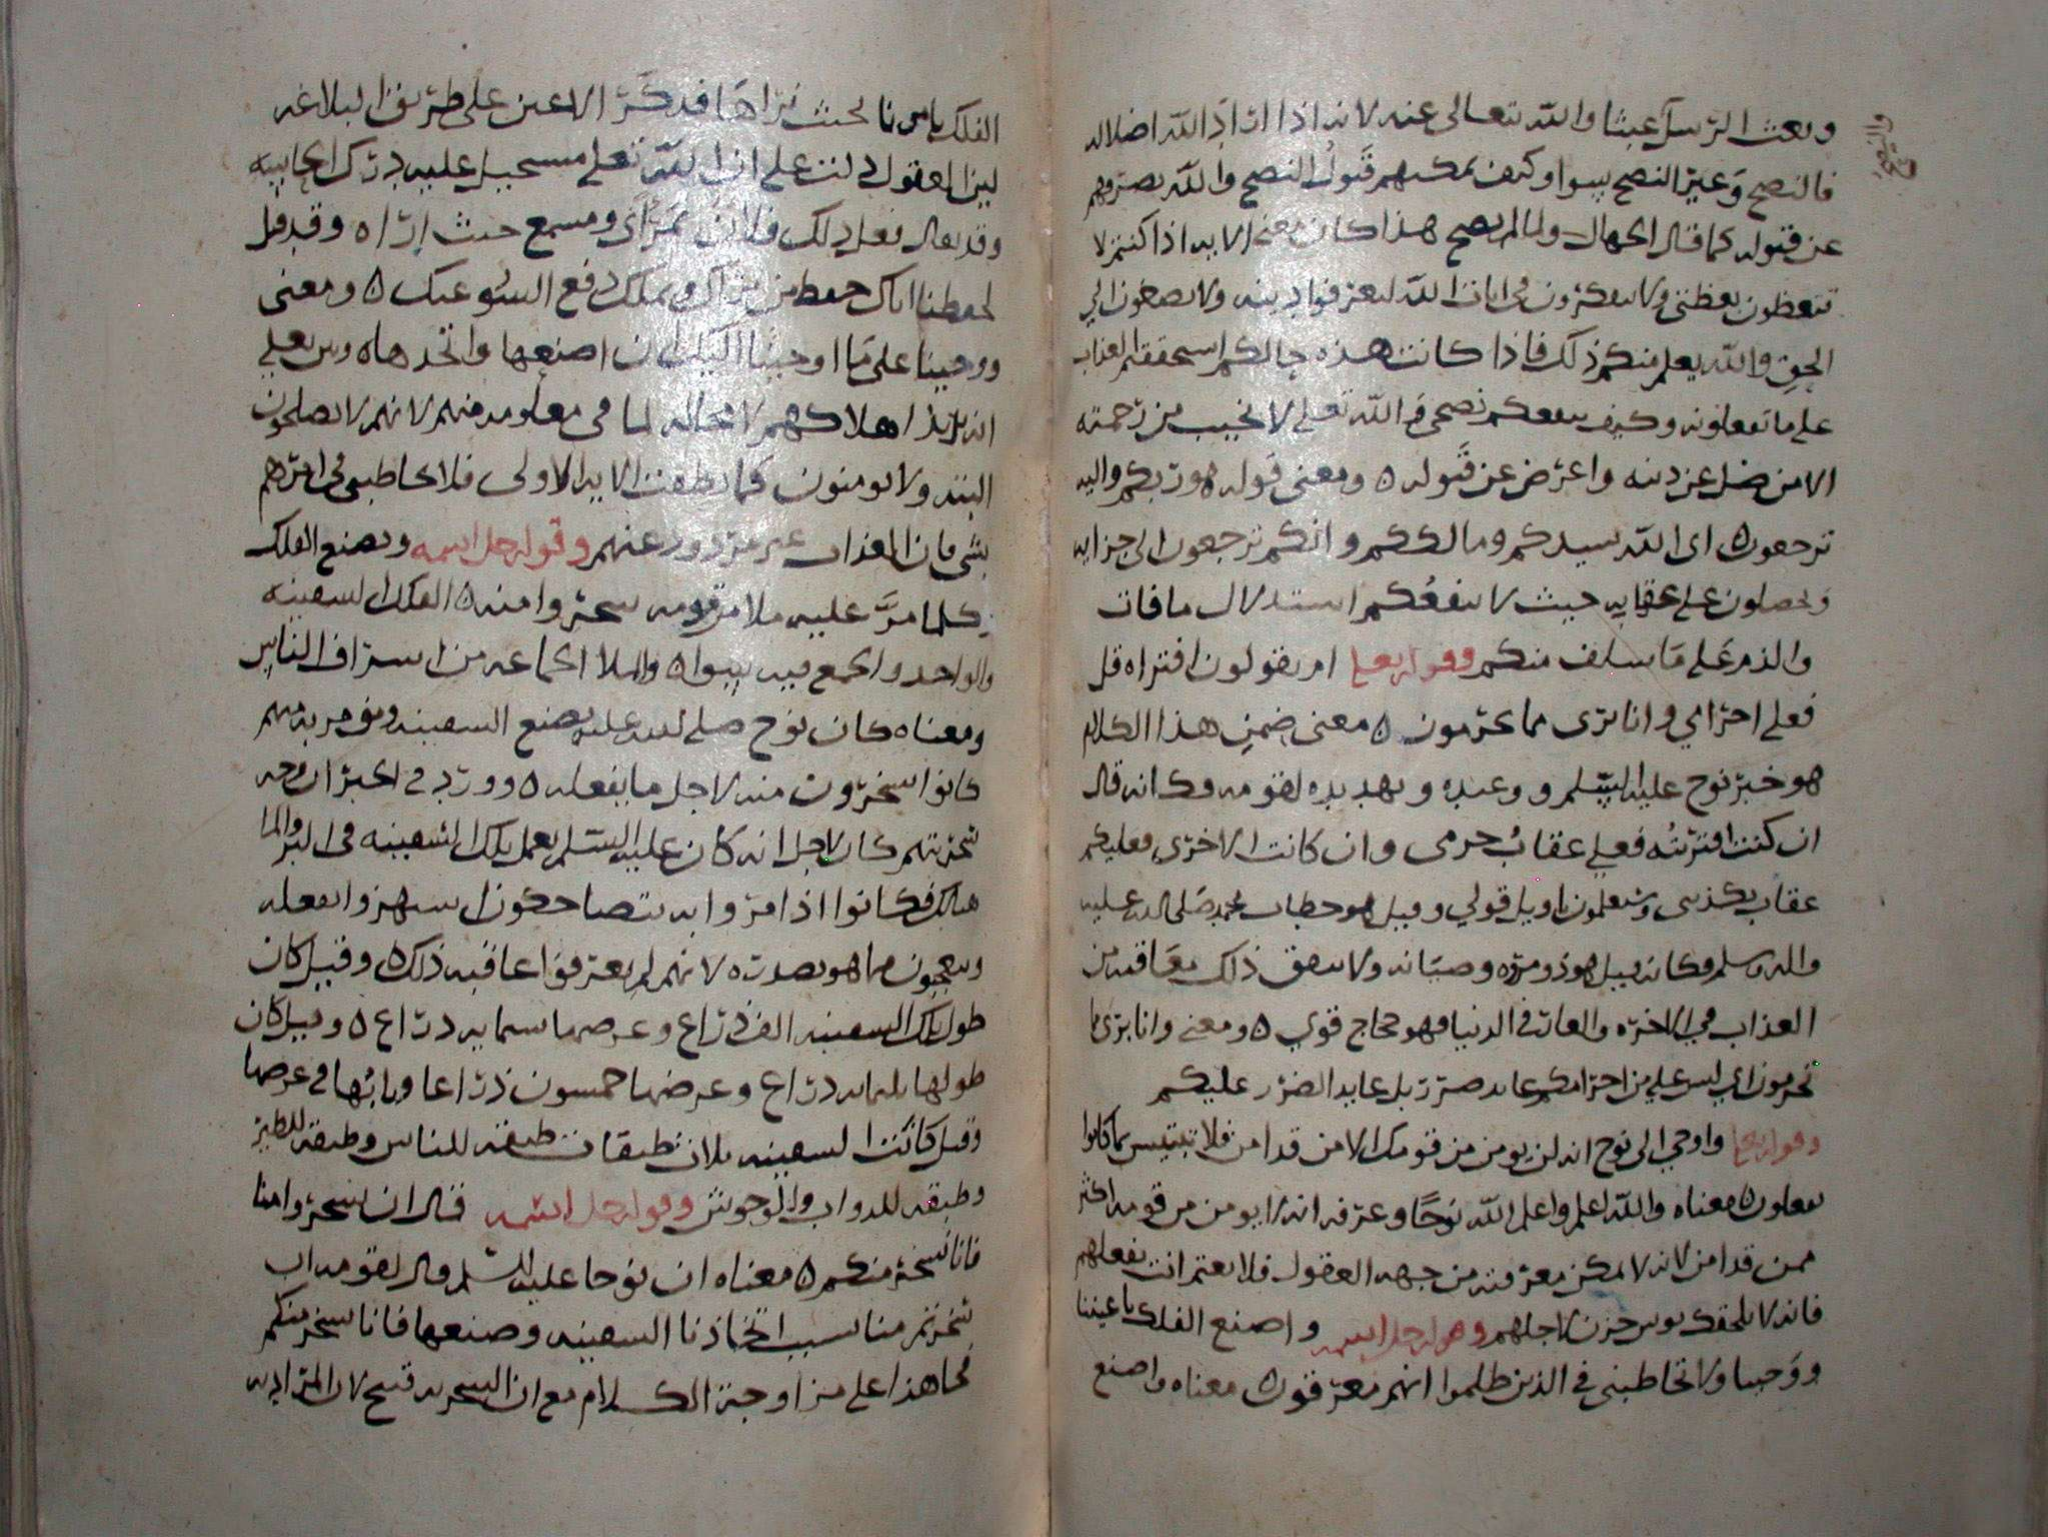 وبعث الرسل عبثا والله تعالى عنه لانه اذا اراد الله اضلاله
فالنصح وغير النصح سوا وكيف يمكنهم قبول النصح والله يصرفهم
عن قبوله كما قال الجهال ولما لم يصح هذا كان معنى الايه اذا كنتم لا
تتعظون بعظتي ولا تتفكرون في ايات الله لتعرفوا دينه ولا تصغون الي
الحق والله يعلم منكم ذلك فاذا كانت هذه حالكم استحققتم العذاب
على ما تفعلونه وكيف ينفعكم نصحي والله تعلى لا يخيب من رحمته
الا من ضل عن دينه واعرض عن قبوله ٥ ومعنى قوله هو ربكم واليه
ترجعون ٥ اى الله سيدكم ومالككم وانكم ترجعون الى جزايه
وتحصلون على عقابه حيث لا ينفعكم استدلال ما فات
والذم على ما سلف منكم وقوله تعلى ام يقولون افتراه قل
فعلي اجرامي وانا برى مما تجرمون ٥ معنى ضمن هذا الكلام
هو خبر نوح عليه السلم ووعيده وتهديده لقومه وكانه قال
ان كنت افتريته فعلي عقاب جرمى وان كانت الاخرى فعليكم
عقاب تكذيبى وستعلمون تاويل قولي وقيل هو خطاب محمد صلى الله عليه
واله وسلم وكانه قيل هو ذو مروه وصيانه ولا يتفق ذلك مع
العذاب في الاخره والعار في الدنيا فهو حجاج قوي ٥ ومعنى وانا برى مما
تجرمون اي ليس علي من اجرامكم عايد ضرر بل عايد الضرر عليكم
وقوله تعلى واوحي الى نوح انه لن يومن من قومك الا من قد امن فلا تبتيس بما كانوا
يفعلون ٥ معناه والله اعلم واعلم الله نوحا وعرفه انه لا يومن من قومه اكثر
ممن قد امن لانه لا يمكن معرفته من جهه العقول فلا تغتم انت بفعلهم
فانه لا يلحقك بوس حزن لاجلهم وقوله جل اسمه واصنع الفلك باعيننا
ووحينا ولا تخاطبني في الذين ظلموا انهم مغرقون ٥ معناه واصنع
الفلك بامرنا بحيث نراها فذكر الاعين على طريق البلاغه
لين العقول دلت على ان الله تعلى مستحيل عليه درك الحاسه
وقد يقال فعل ذلك فلان بمراى ومسمع حيث اراه وقد قيل
بحفظنا اياك حفظ من يراك ويملك دفع السو عنك ٥ ومعنى
ووحينا على ما اوحينا اليك ان اصنعها واتخذها ٥ وبين تعلى
انه يريد اهلاكهم لا محاله لما في معلومه منهم لانهم لا يصلحون
البته ولا يومنون كما نطقت الايه الاولى فلا تخاطبني في امرهم
بشى فان العذاب غير مردود عنهم وقوله جل اسمه ويصنع الفلك
وكلما مر عليه ملا من قومه سخروا منه ٥ الفلك السفينه
والواحد والجمع فيه سوا ٥ والملا الجماعه من اشراف الناس
ومعناه كان نوح صلى الله عليه يصنع السفينه وقومه
كانوا يسخرون منه لاجل ما يفعله ٥ وورد في الخبر ان وجه
سخريتهم كان لاجل انه كان عليه السلم يعمل تلك السفينه في البر ولا ما
هنالك فكانوا اذا مروا به يتضاحكون استهزوا بفعله
ويتعجبون مما هو بصدده لانهم لم يعرفوا عاقبه ذلك ٥ وقيل كان
طول تلك السفينه الف ذراع وعرضها ستمايه ذراع ٥ وقيل كان
طولها ثلثمايه ذراع وعرضها خمسون ذراعا وبابها في عرضها
وقيل كانت السفينه ثلاث طبقات طبقه للناس وطبقه للطير
وطبقه للدواب والوحوش وقوله جل اسمه قال ان تسخروا منا
فانا نسخر منكم ٥ معناه ان نوحا عليه السلم قال لقومه ان
سخرتم منا بسبب اتخاذنا السفينه وصنعها فانا نسخر منكم
فجا هذا على مزاوجة الكلام مع ان السخريه قبيح لان المراد به